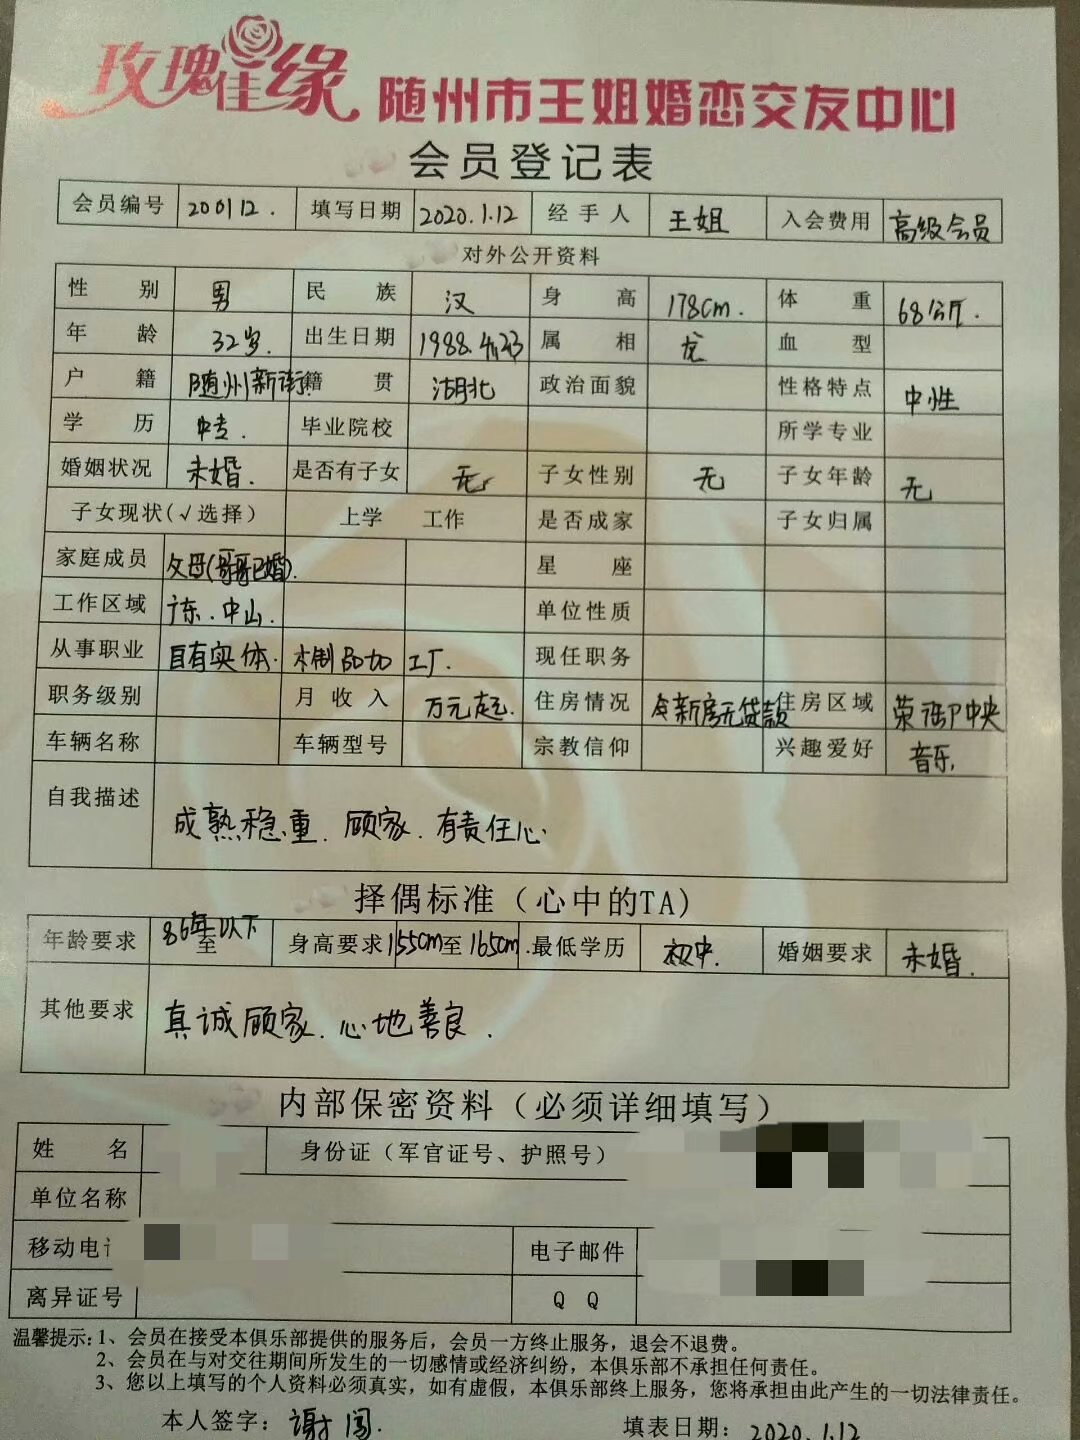 玫瑰佳缘 随州市王姐婚恋交友中心
会员登记表
会员编号 200112. 填写日期 2020.1.12 经手人 王姐 入会费用 高级会员
对外公开资料
性别 男 民族 汉 身高 178cm. 体重 68公斤.
年龄 32岁. 出生日期 1988.4.23 属相 龙 血型
户籍 随州新街. 籍贯 湖北 政治面貌 性格特点 中性
学历 中专. 毕业院校 所学专业
婚姻状况 未婚. 是否有子女 无 子女性别 无 子女年龄 无
子女现状(√选择) 上学 工作 是否成家 子女归属
家庭成员 父母(哥哥已婚). 星座
工作区域 广东.中山. 单位性质
从事职业 自有实体. 木制品加工厂. 现任职务
职务级别 月收入 万元起. 住房情况 全新房无贷款 住房区域 中央
车辆名称 车辆型号 宗教信仰 兴趣爱好 音乐
自我描述 成熟稳重.顾家.有责任心
择偶标准（心中的TA)
年龄要求 86年以下 至 身高要求 155cm至165cm. 最低学历 初中. 婚姻要求 未婚.
其他要求 真诚顾家.心地善良.
内部保密资料（必须详细填写）
姓名 身份证（军官证号、护照号）
单位名称
移动电 电子邮件
离异证号 QQ
温馨提示:1、会员在接受本俱乐部提供的服务后，会员一方终止服务，退会不退费。
2、会员在与对交往期间所发生的一切感情或经济纠纷，本俱乐部不承担任何责任。
3、您以上填写的个人资料必须真实，如有虚假，本俱乐部终上服务，您将承担由此产生的一切法律责任。
本人签字：谢闯. 填表日期：2020.1.12